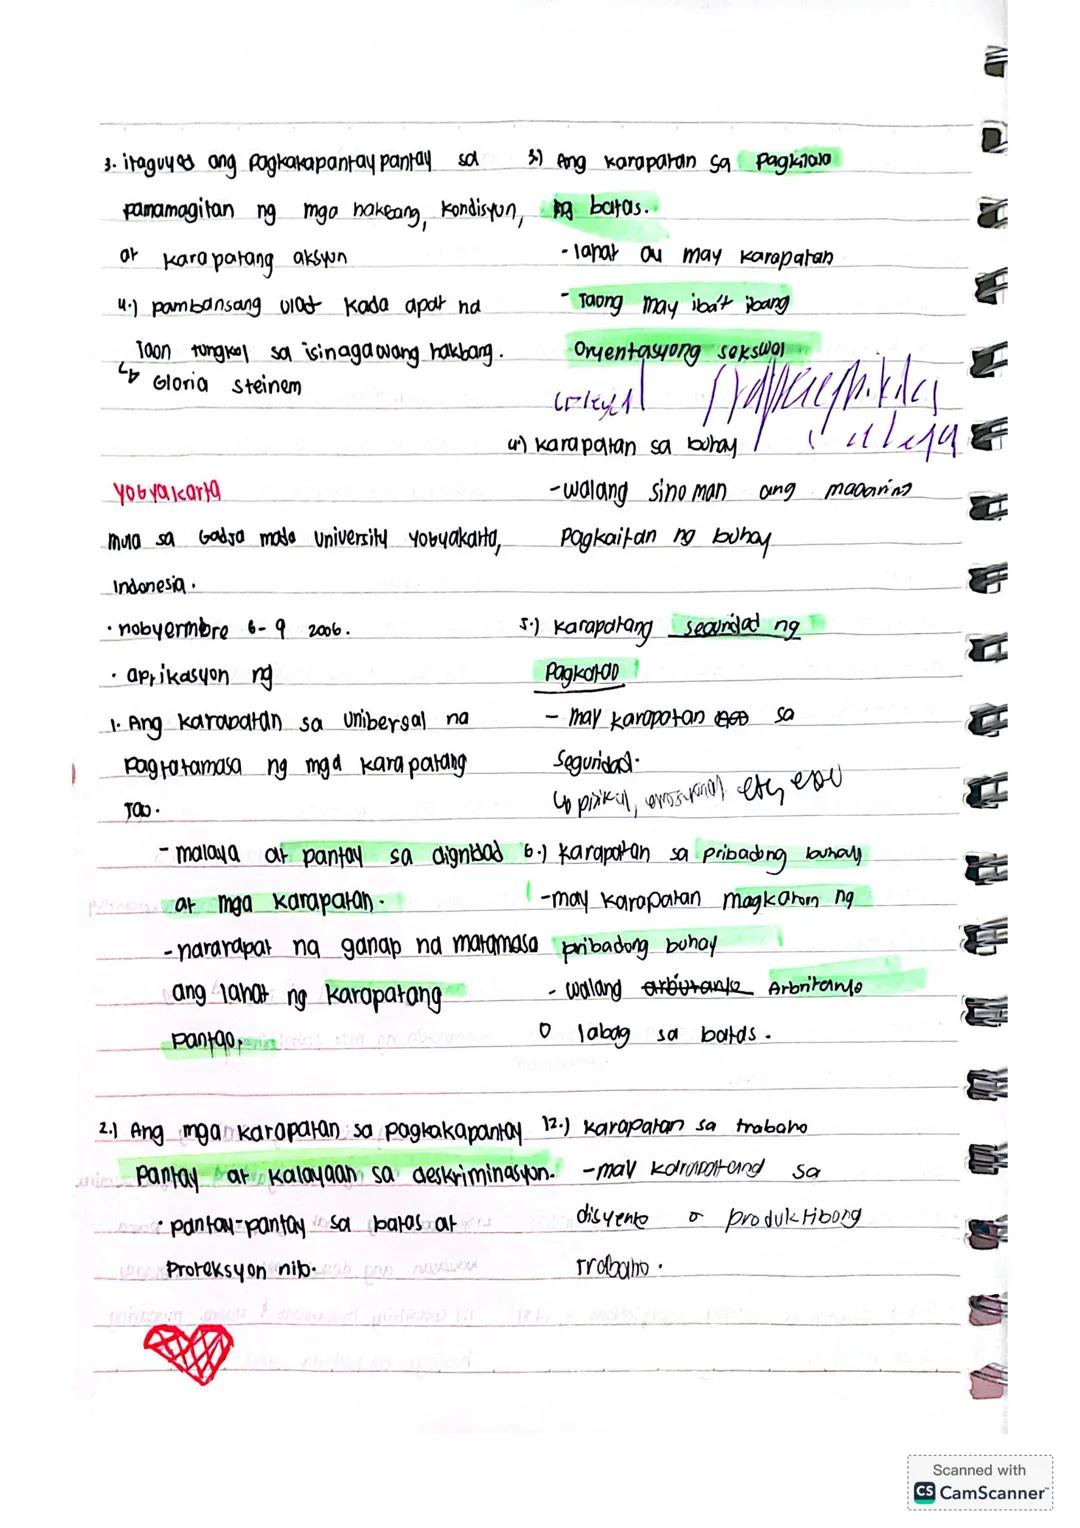 3. itaguyod ang pagkakapantaypantay sa
pamamagitan ng mga hakbang, kondisyun,
at karapatang aksyun
4.) pambansang ulat kada apat na
Taon tungkol sa isinagawang hakbang.
↳ Gloria steinem
Yogyakarta
mula sa Gadja mada University Yogyakarta,
Indonesia.
• nobyermbre 6-9 2006.
• aprikasyon ng
1. Ang karapatan sa unibersal na
Pagtatamasa ng mga karapatang
Tao.
- malaya at pantay sa dignidad
at mga karapatan.
- nararapat na ganap na matamasa
ang lahat ng karapatang
Pantao.
2.) Ang mga karapatan sa pagkakapantay
Pantay at kalayaan sa deskriminasyon.
• pantay-pantay sa batas at
Proteksyon nito.
3.) Ang karapatan sa pagkilala
ng batas.
- lahat ay may karapatan
- Taong may iba't ibang
Oryentasyong sekswal
4.) karapatan sa buhay
- walang sino man ang maaaring
Pagkaitan ng buhay
5.) karapatang seguridad ng
Pagkatao
- may karapatan sa
Seguridad.
↳ pisikal, emosyonal etc,
6.) karapatan sa pribadong buhay
- may karapatan magkaron ng
pribadong buhay
- walang Arbritaryo
O labag sa batas.
12.) karapatan sa trabaho
- may karapatang sa
disyente o produktibong
Trabaho.
Scanned with
CS CamScanner